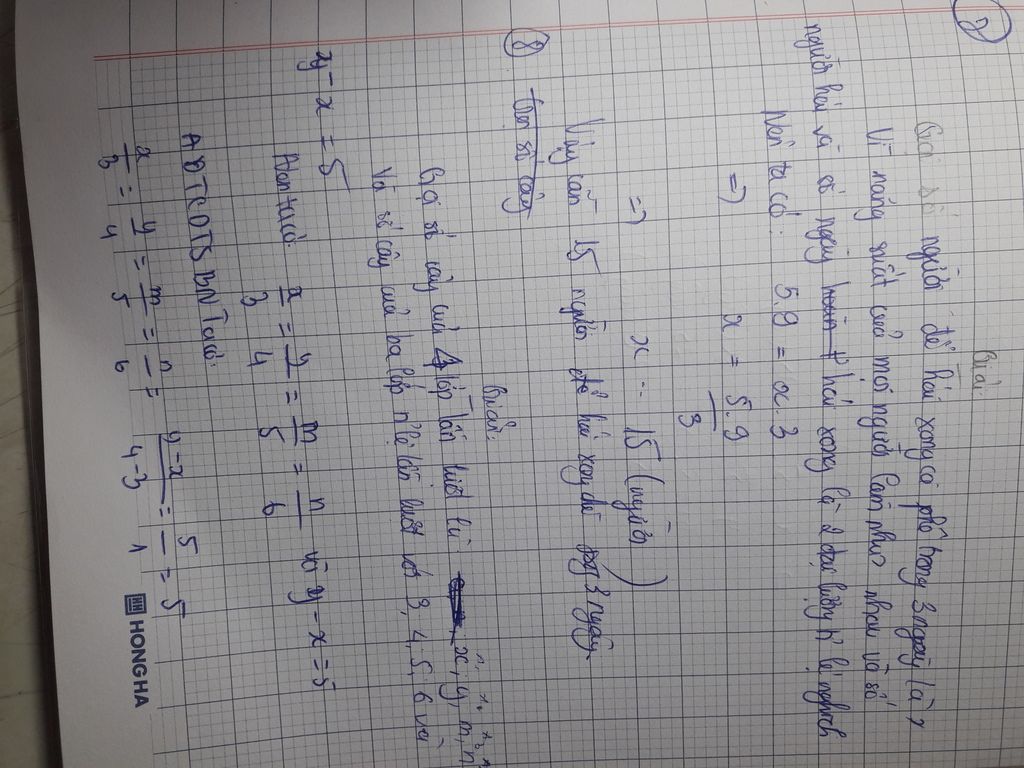 7
Bài
Gọi số người để hái xong cà phê trong 3 ngày là x
Vì năng suất của mỗi người làm như nhau và số
người hái và số ngày hái xong là 2 đại lượng tỉ lệ nghịch
Nên ta có: 5.9 = x.3
=> x = 5.9/3
=> x = 15 (người)
Vậy cần 15 người để hái xong 3 ngày
8
Gọi số cây
Giải:
Gọi số cây của 4 lớp lần lượt là x, y, m, n
Và số cây của ba lớp tỉ lệ lần lượt với 3, 4, 5, 6 và
y - x = 5
Nên ta có x/3 = y/4 = m/5 = n/6 và y - x = 5
ADTCDTSBN Ta có:
x/3 = y/4 = m/5 = n/6 = y-x/4-3 = 5/1 = 5
HONG HA